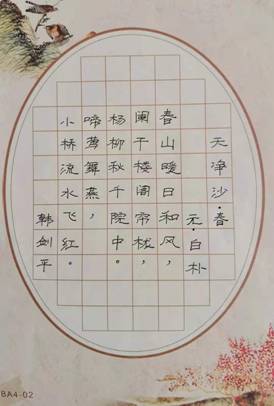 天净沙·春
元·白朴
春山暖日和风，
阑干楼阁帘栊，
杨柳秋千院中。
啼莺舞燕，
小桥流水飞红。
韩剑平
BA4-02